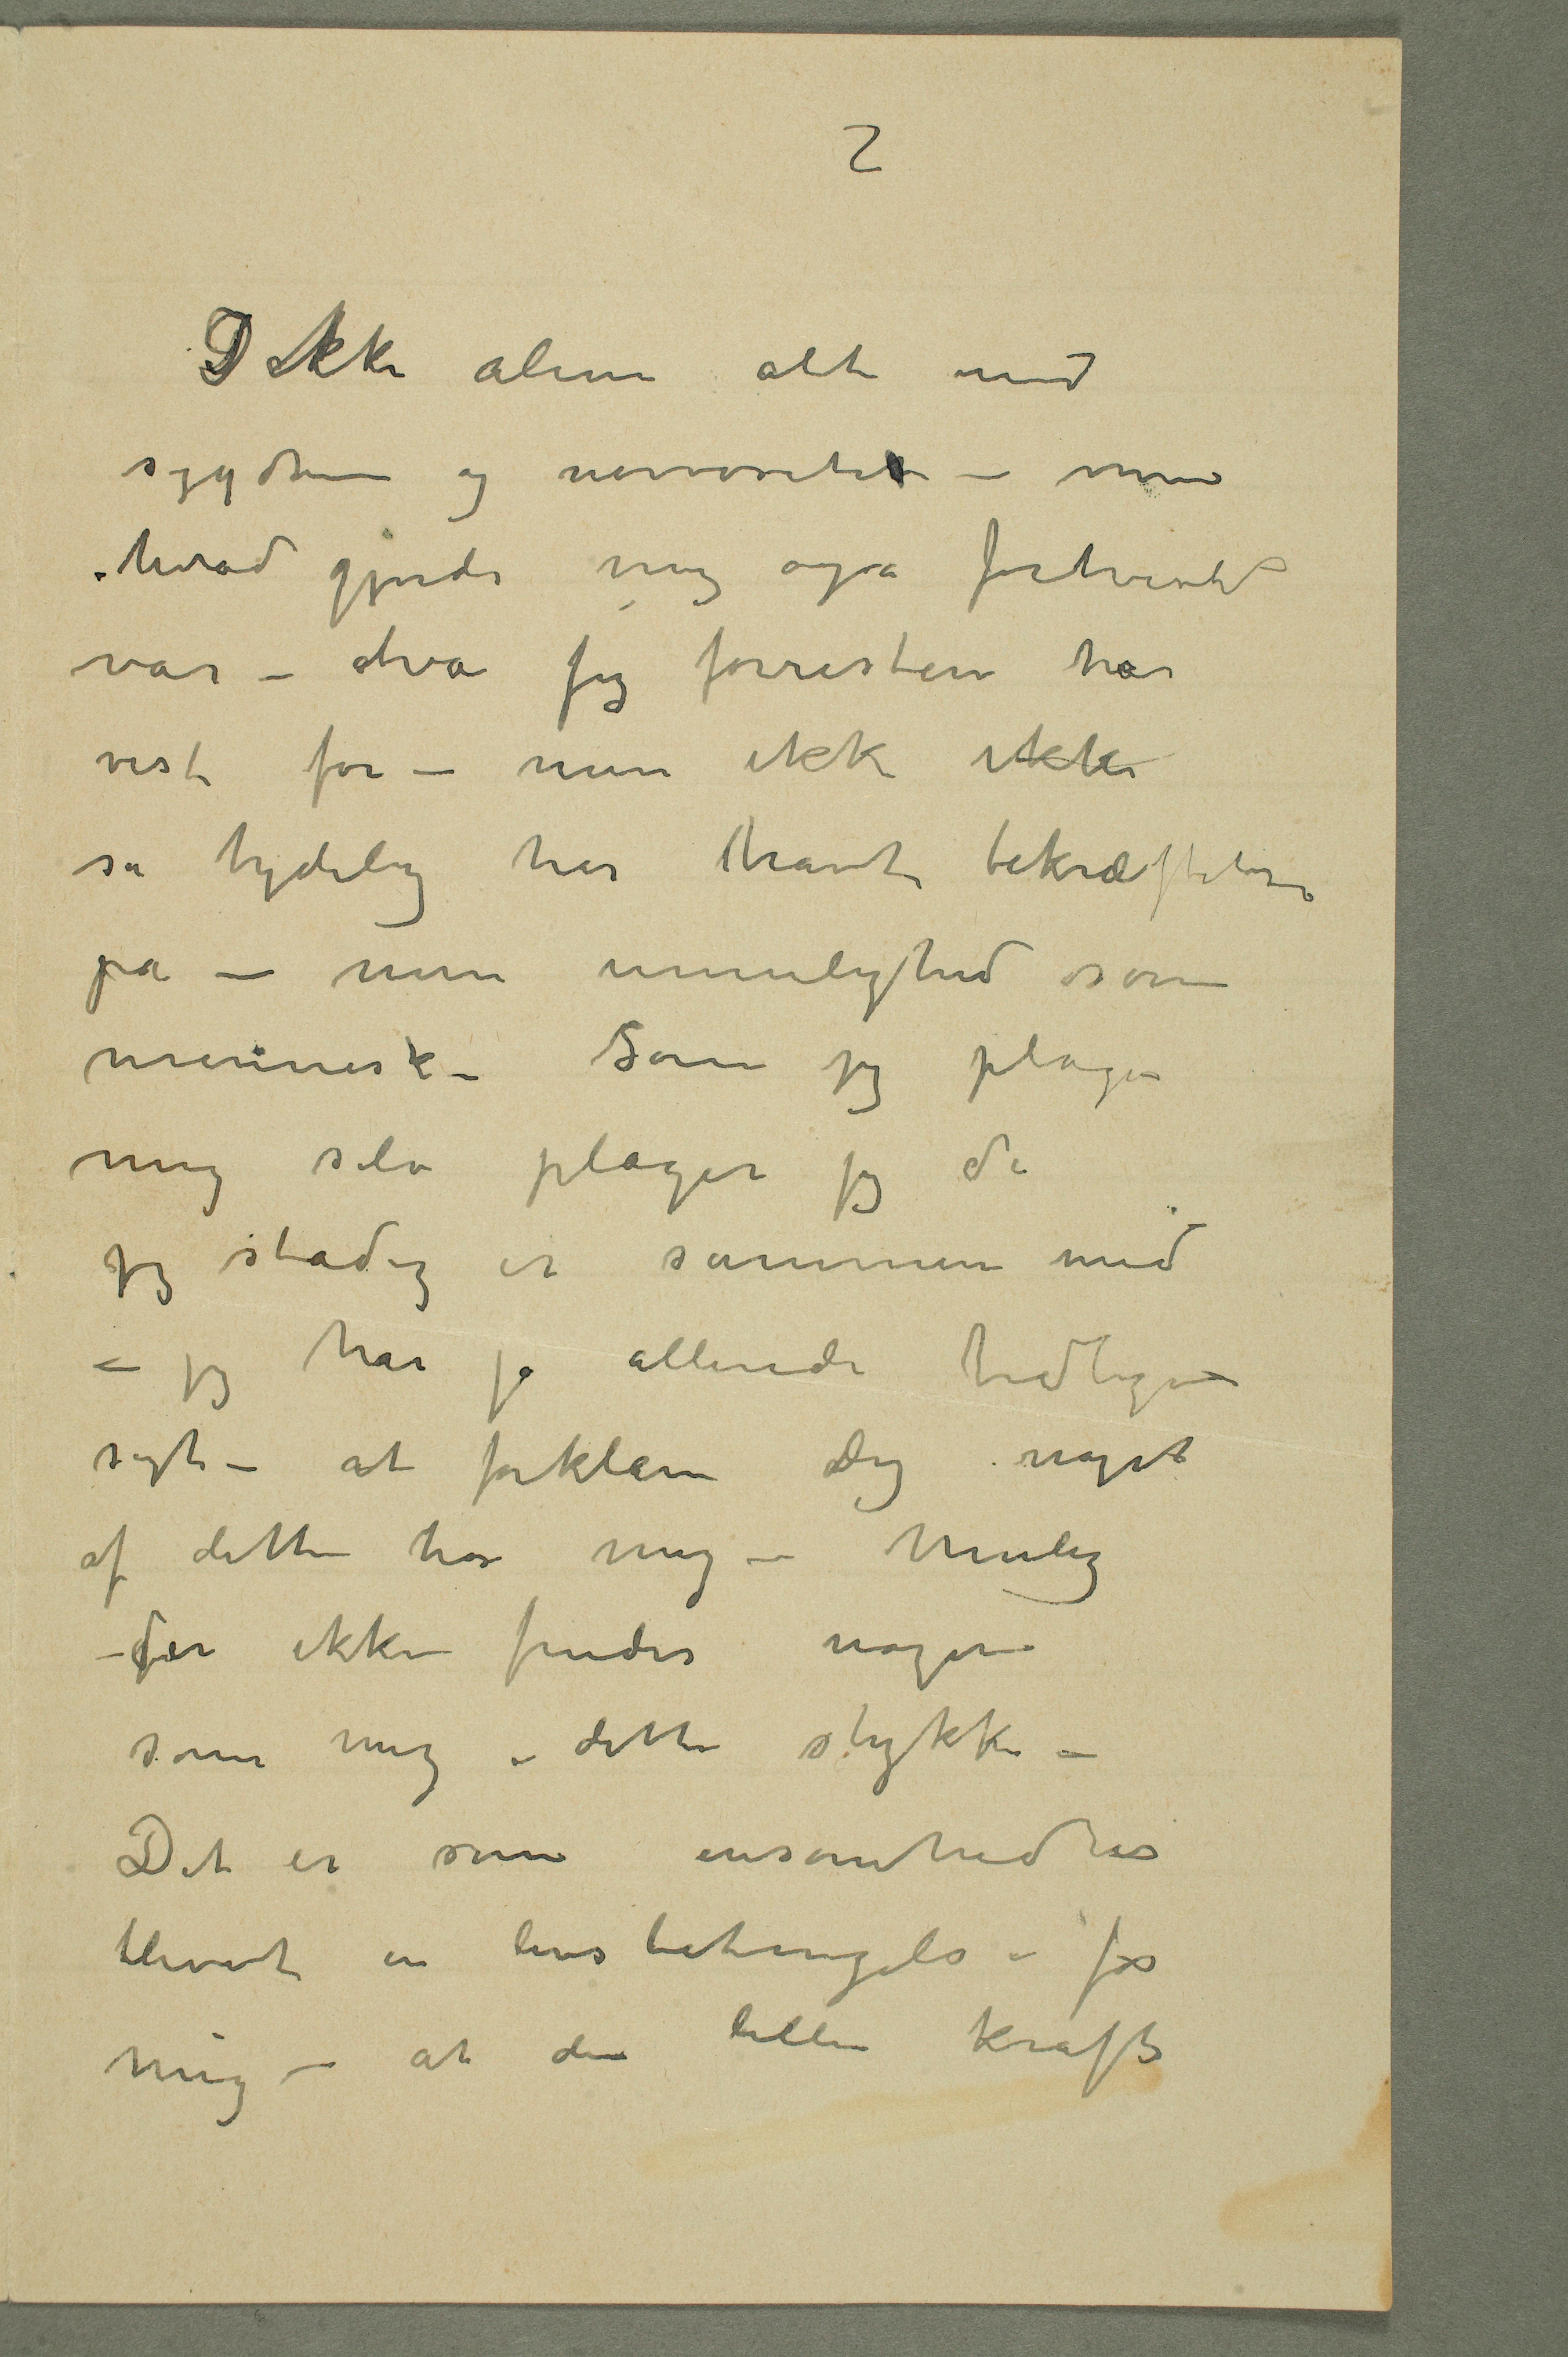 2
Ikke alene alt med
sygdom og nervøsitet – men
hvad gjorde mig også fortvivlet
var – hva jeg forresten har
vist før – men ikke ikke
så tydelig har havt bekræftelse
på – min umulighed som
menneske – Som jeg plager
mig selv plager jeg de
jeg stadig er sammen med
– jeg har jo allerede tidligere
søgt – at forklare Dig noget
af dette hos mig – Mulig
– der ikke findes nogen
som mig i dette stykke –
Det er som ensomhed er
blevet en livsbetingelse – for
mig – at den lille kraft